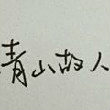 青山故人